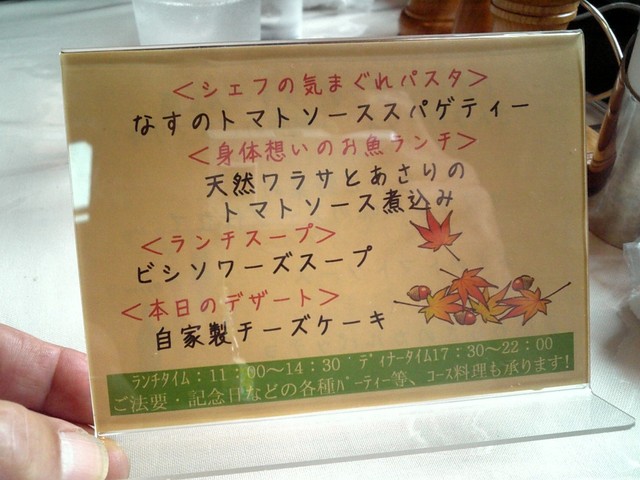 ＜シェフの気まぐれパスタ＞
なすのトマトソーススパゲティー
＜身体想いのお魚ランチ＞
天然ワラサとあさりの
トマトソース煮込み
＜ランチスープ＞
ビシソワーズスープ
＜本日のデザート＞
自家製チーズケーキ
ﾗﾝﾁﾀｲﾑ：11：00～14：30 ﾃﾞｨﾅｰﾀｲﾑ17：30～22：00
ご法要・記念日などの各種ﾊﾟｰﾃｨｰ等、ｺｰｽ料理も承ります!